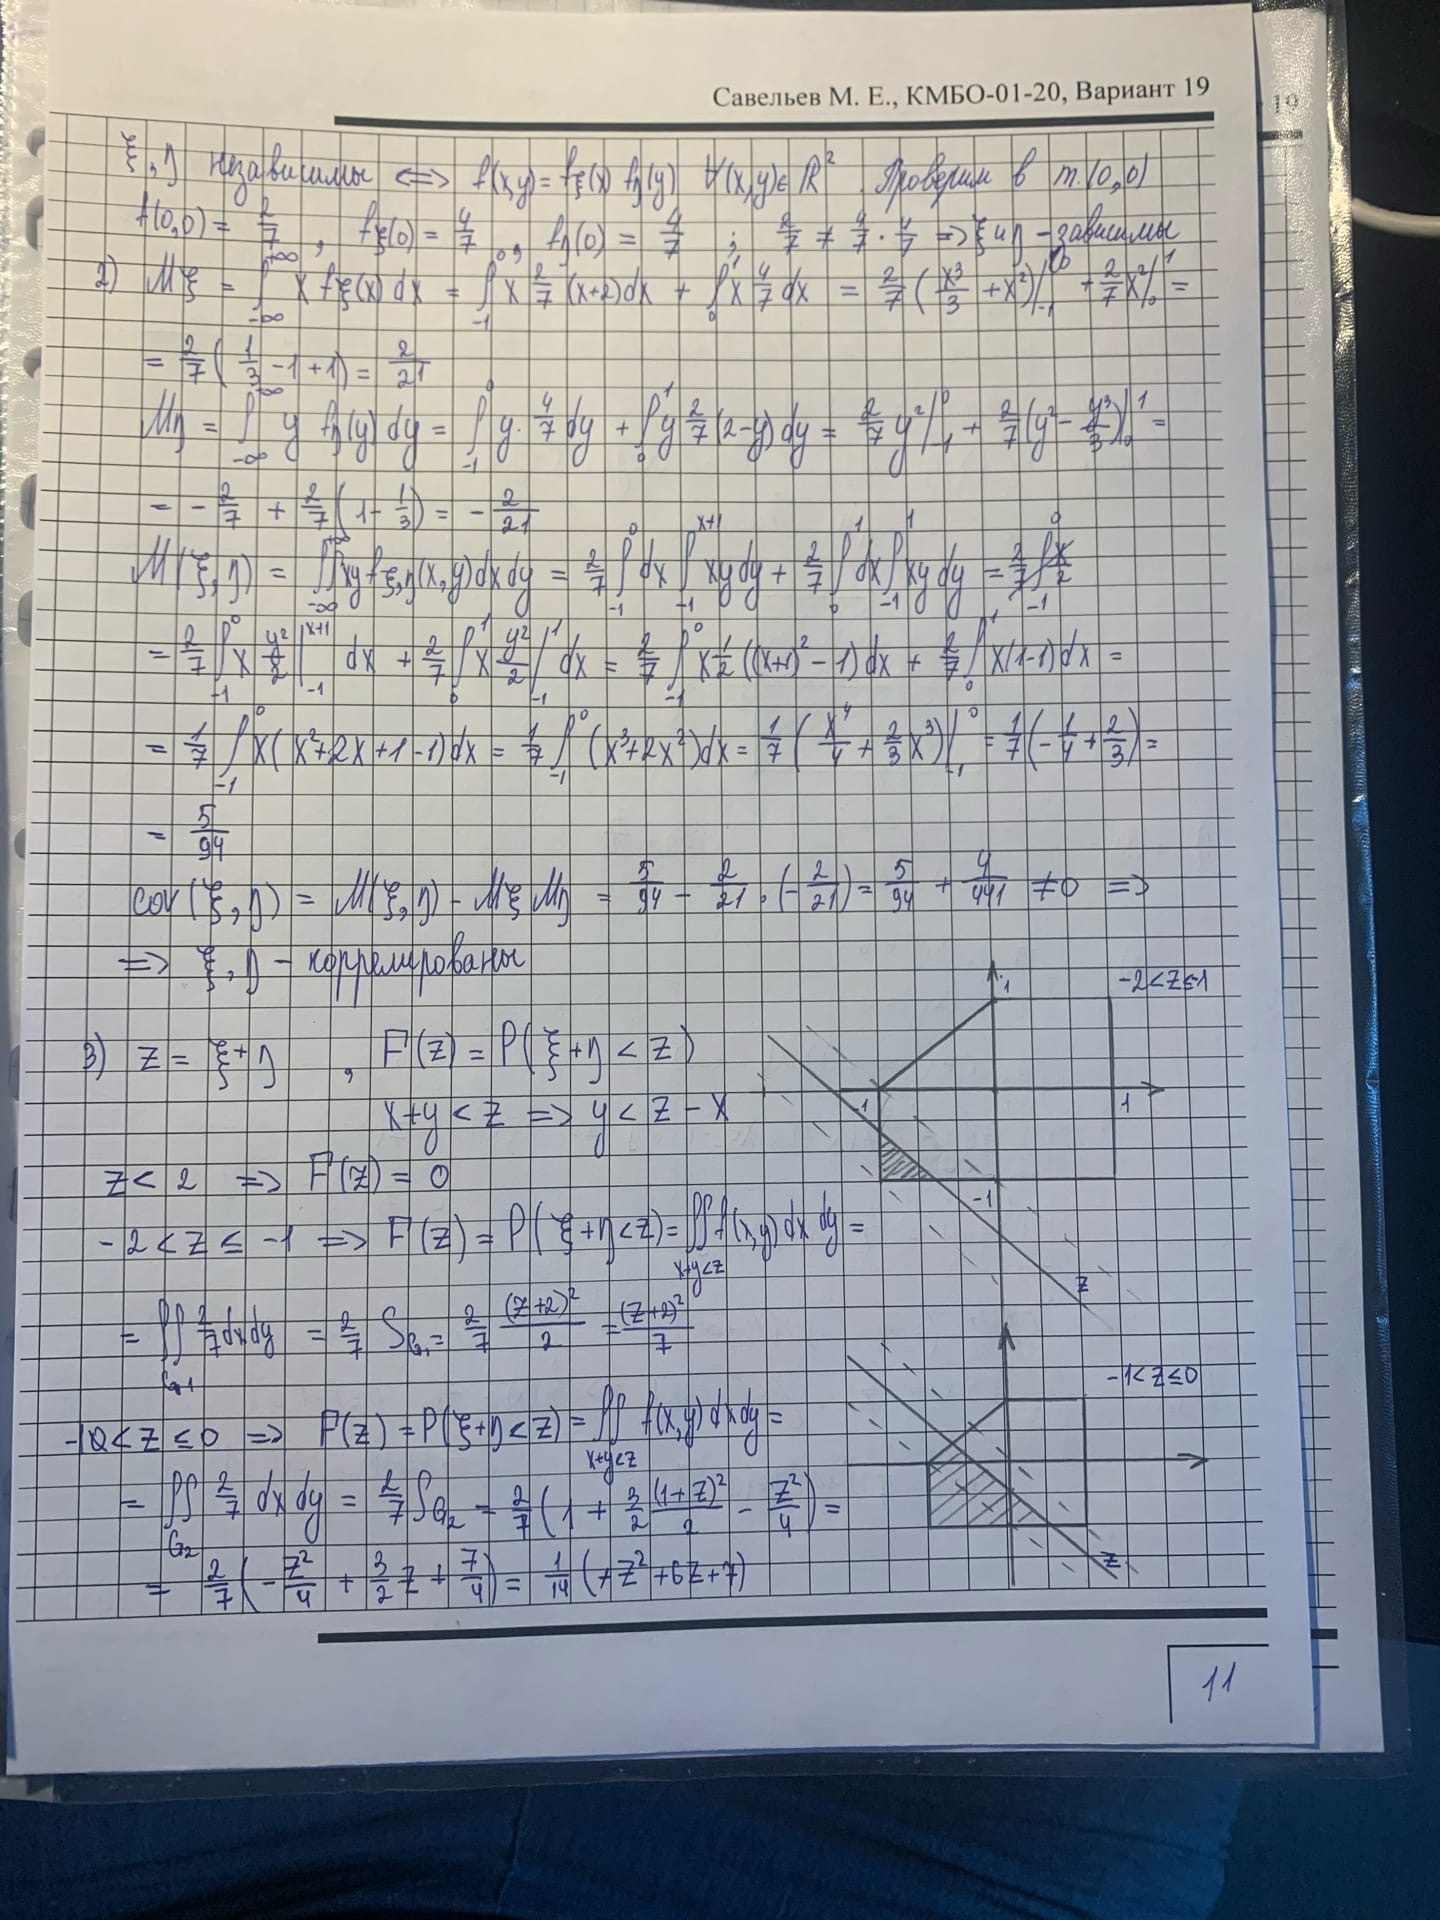 Савельев М. Е., КМБО-01-20, Вариант 19
ξ, η независимы <=> f(x,y) = fξ(x) fη(y) ∀(x,y)∈ℝ² . Проверим в т.(0,0)
f(0,0) = 2/7 , fξ(0) = 4/7 , fη(0) = 4/7 ; 2/7 ≠ 4/7 · 4/7 => ξ и η - зависимы
2) Mξ = ∫_{-∞}^{+∞} x fξ(x) dx = ∫_{-1}^{0} x 2/7 (x+2) dx + ∫_{0}^{1} x 4/7 dx = 2/7 (x³/3 + x²)|_{-1}^{0} + 2/7 x²|_{0}^{1} =
= 2/7 (1/3 - 1 + 1) = 2/21
Mη = ∫_{-∞}^{+∞} y fη(y) dy = ∫_{-1}^{0} y · 4/7 dy + ∫_{0}^{1} y 2/7 (2-y) dy = 2/7 y²|_{-1}^{0} + 2/7 (y² - y³/3)|_{0}^{1} =
= - 2/7 + 2/7 (1 - 1/3) = - 2/21
M(ξ,η) = ∬_{-∞}^{+∞} xy fξ,η(x,y) dx dy = 2/7 ∫_{-1}^{0} dx ∫_{-1}^{x+1} xy dy + 2/7 ∫_{0}^{1} dx ∫_{-1}^{1} xy dy = 2/7 ∫_{-1}^{0} x/2
= 2/7 ∫_{-1}^{0} x y²/2 |_{-1}^{x+1} dx + 2/7 ∫_{0}^{1} x y²/2 |_{-1}^{1} dx = 2/7 ∫_{-1}^{0} x 1/2 ((x+1)² - 1) dx + 2/7 ∫_{0}^{1} x(1-1) dx =
= 1/7 ∫_{-1}^{0} x(x²+2x+1-1) dx = 1/7 ∫_{-1}^{0} (x³+2x²) dx = 1/7 (x⁴/4 + 2/3 x³)|_{-1}^{0} = 1/7 (-1/4 + 2/3) =
= 5/94
cov(ξ,η) = M(ξ,η) - Mξ Mη = 5/94 - 2/21 · (-2/21) = 5/94 + 4/441 ≠ 0 =>
=> ξ, η - коррелированы
1
-2<z≤-1
3) z = ξ+η , F(z) = P(ξ+η < z)
x+y < z => y < z - x
-1
1
z < 2 => F(z) = 0
-1
-2 < z ≤ -1 => F(z) = P(ξ+η<z) = ∬_{x+y<z} f(x,y) dx dy =
z
= ∬_{G1} 2/7 dx dy = 2/7 S_{G1} = 2/7 (z+2)²/2 = (z+2)²/7
-1<z≤0
-1<z≤0 => F(z) = P(ξ+η<z) = ∬_{x+y<z} f(x,y) dx dy =
= ∬_{G2} 2/7 dx dy = 2/7 S_{G2} = 2/7 (1 + 3/2 (1+z)²/2 - z²/4) =
z
= 2/7 (- z²/4 + 3/2 z + 7/4) = 1/14 (-z² + 6z + 7)
11